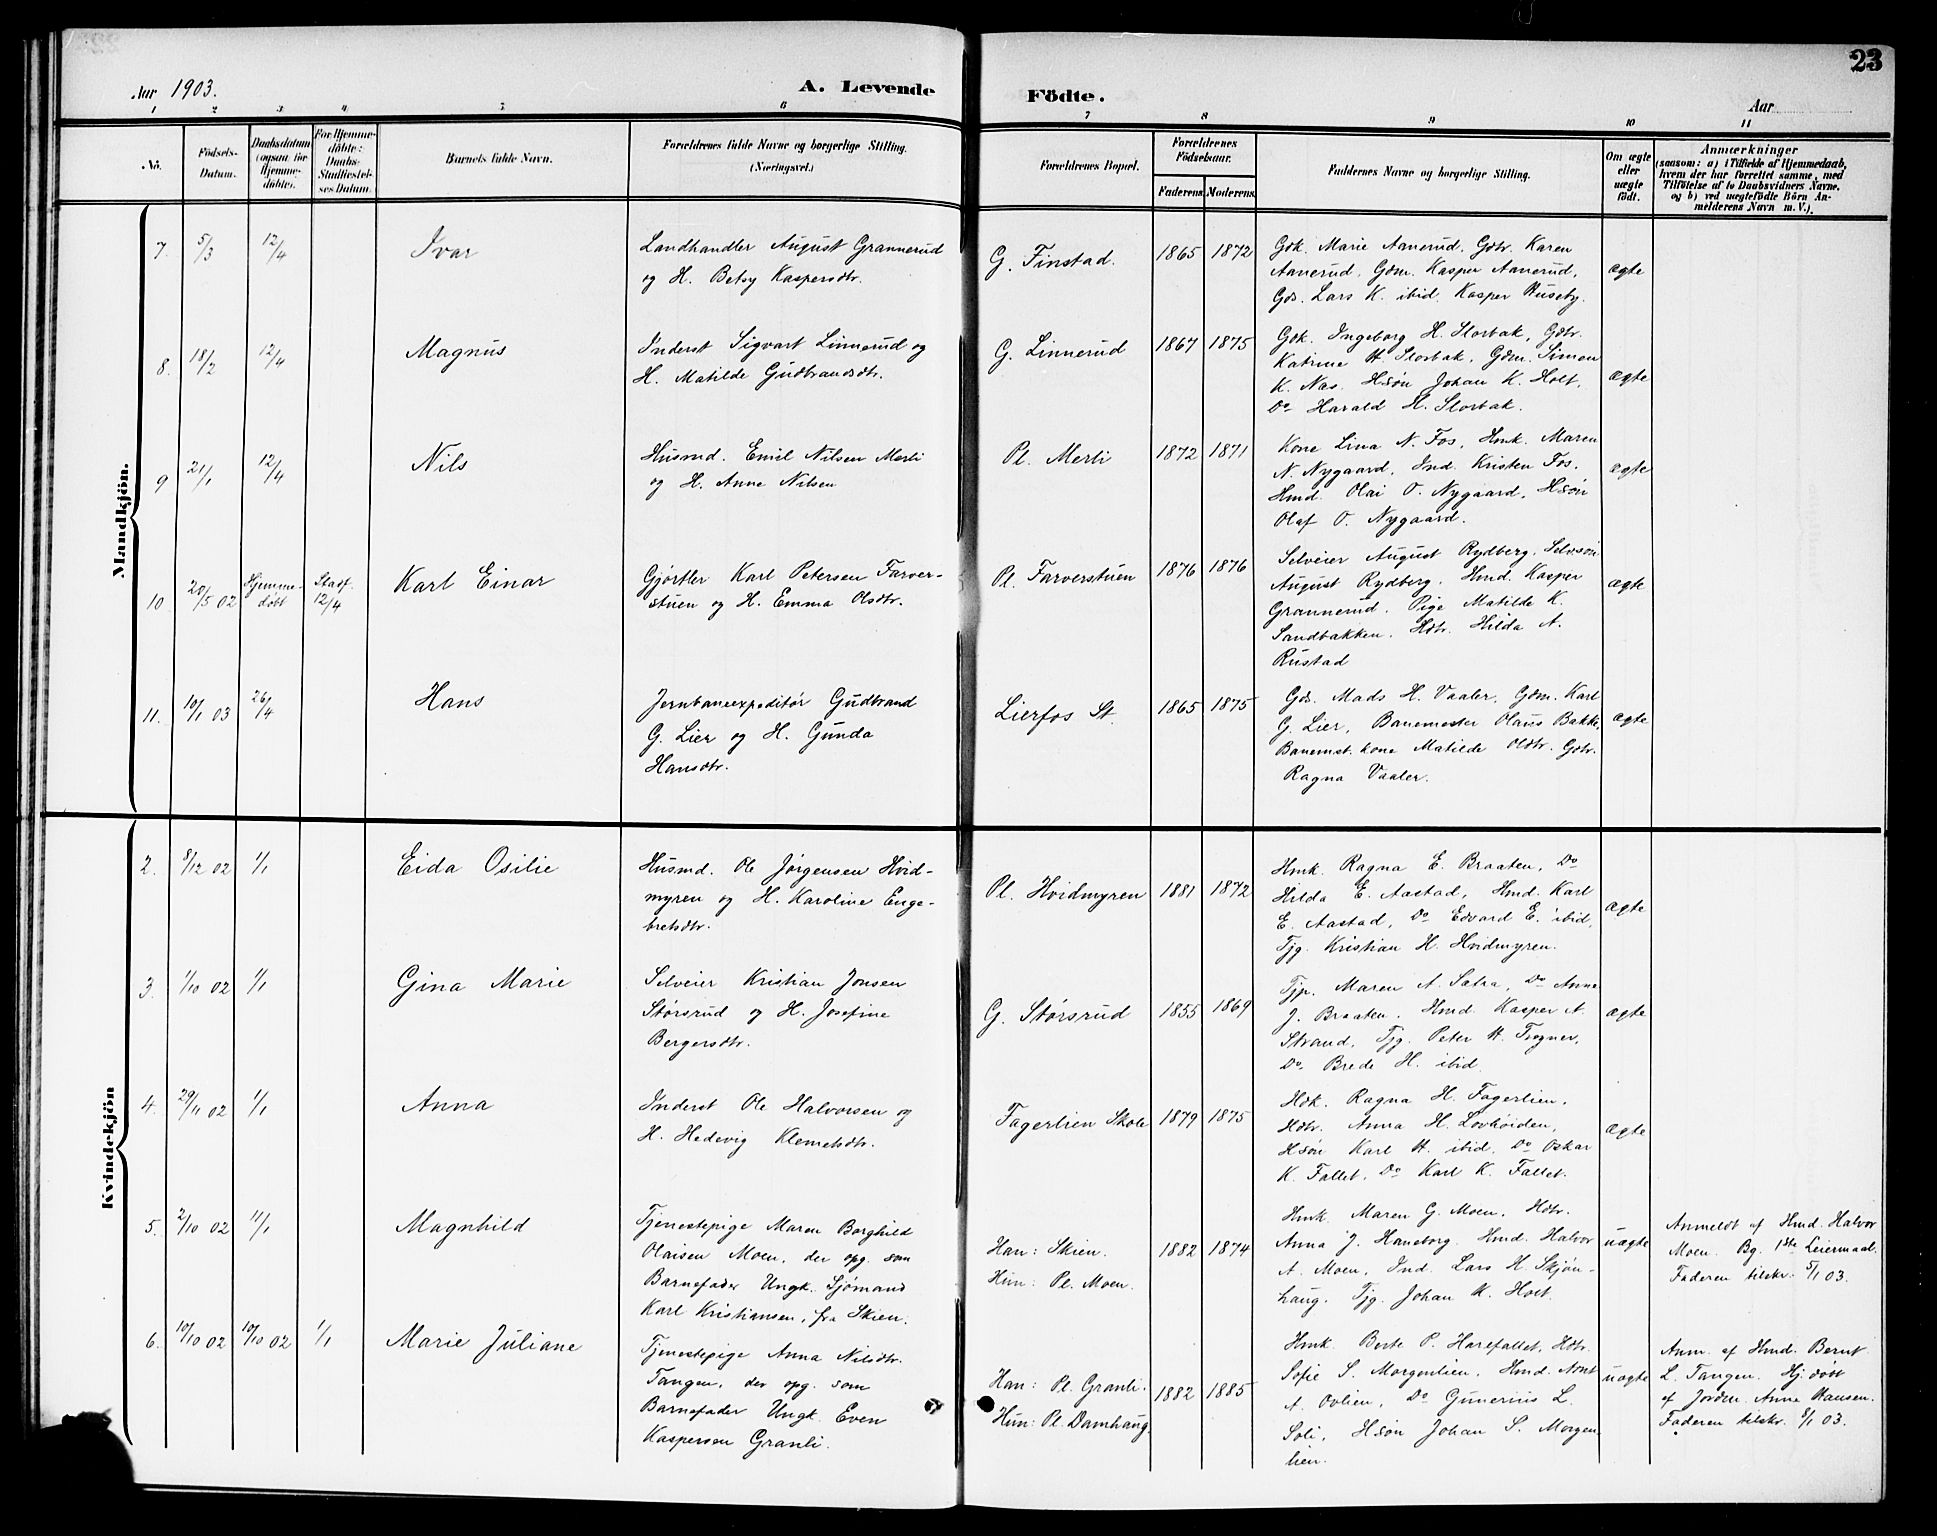 23
Aar 1903. A. Levende Födte. Aar
1 2 3 4 5 6 7 8 9 10 11
No. Födsels-Datum. Daabsdatum (ogsaa for Hjemmedöbte). For Hjemmedöbte: Daabs-Stadfæstelses Datum. Barnets fulde Navn. Forældrenes fulde Navne og borgerlige Stilling. (Næringsvei.) Forældrenes Bopæl. Forældrenes Födselsaar. Faderens Moderens Faddernes Navne og borgerlige Stilling. Om ægte eller uægte födt. Anmærkninger (saasom: a) i Tilfælde af Hjemmedaab, hvem der har forrettet samme, med Tilföielse af to Daabsvidners Navne, og b) ved uægtefödte Börn Anmelderens Navn m. V.).
Mandkjön.
7. 5/3 12/4 Ivar
Landhandler August Grannerud
og H. Betsy Kaspersdtr.
G. Finstad. 1865 1872
Gdk. Marie Aanerud. Gdtr. Karen
Aanerud, Gdm. Kasper Aanerud,
Gds. Lars K. ibid. Kasper Huseby.
ægte
8. 18/2 12/4 Magnus
Inderst Sigvart Linnerud og
H. Matilde Gudbrandsdtr.
G. Linnerud 1867 1875
Gdk. Ingeborg H. Slorbak, Gdtr.
Katrine H. Slorbak, Gdm. Simon
K. Næs. Hsøn Johan K. Holt,
Do Harald H. Slorbak.
ægte
9 21/1 12/4 Nils
Husmd. Emil Nilsen Merli
og H. Anne Nilsen
Pl. Merli 1872 1871
Kone Lina N. Fos, Hmk. Maren
N. Nygaard, Ind. Kristen Fos.
Hmd. Olai O. Nygaard, Hsøn
Olaf O. Nygaard.
ægte
10 20/5 02 Hjemme-
døbt Stadf.
12/4 Karl Einar
Gjørtler Karl Petersen Farver-
stuen og H. Emma Olsdtr.
Pl. Farverstuen 1876 1876
Selveier August Rydberg, Selvsøn
August Rydberg. Hmd. Kasper
Grannerud. Pige Matilde K.
Sandbakken. Hdtr. Hilda A.
Rustad
ægte
11. 10/1 03 26/4 Hans
Jernbaneexpeditør Gudbrand
G. Lier og H. Gunda
Hansdtr.
Lierfos St. 1865 1875
Gds. Mads H. Vaaler, Gdm. Karl
G. Lier, Banemester Olaus Bakke,
Banemst. kone Matilde Oldtr. Gdtr.
Ragna Vaaler.
ægte
Kvindekjön
2. 8/12 02 1/1 Eida Osilie
Husmd. Ole Jørgensen Hvid-
myren og H. Karoline Enge-
bretsdtr.
Pl. Hvidmyren 1881 1872
Hmk. Ragna E. Braaten, Do
Hilda E. Aastad, Hmd. Karl
E. Aastad, Do Edvard E. ibid,
Tjg. Kristian H. Hvidmyren.
ægte
3. 1/10 02 1/1 Gina Marie
Selveier Kristian Jonsen
Størsrud og H. Josefine
Bergersdtr.
G. Størsrud 1855 1869
Tjp. Maren A. Sætra, Do Anne
J. Braaten. Hmd. Kasper A.
Strand, Tjg. Peter H. Trogner,
Do Brede H. ibid.
ægte
4. 29/11 02 1/1 Anna
Inderst Ole Halvorsen og
H. Hedevig Klemetsdtr.
Fagerlien Skole 1879 1875
Hdk. Ragna H. Fagerlien,
Hdtr. Anna H. Lovhöiden,
Hsøn Karl H. ibid. Do Oskar
K. Fallet, Do Karl K. Fallet.
ægte
5. 2/10 02 11/1 Magnhild
Tjenestepige Maren Borghild
Olaisen Moen, der opg. som
Barnefader Ungk. Sjømand
Karl Kristiansen, fra Skien.
Han: Skien.
Hun: Pl. Moen.
1882 1874
Hmk. Maren G. Moen, Hdtr.
Anna J. Haneborg. Hmd. Halvor
A. Moen, Ind. Lars H. Skjøn-
haug. Tjg. Johan K. Holt.
uægte
Anmeldt af Hmd. Halvor
Moen. Bg. 1ste Leiermaal.
Faderen tilskr. 5/1 03.
6. 10/10 02 10/10 02 1/1 Marie Juliane
Tjenestepige Anna Nilsdtr.
Tangen, der opg. som
Barnefader Ungk. Even
Kaspersen Granli.
Han: Pl. Granli.
Hun: Pl. Damhaug.
1882 1885
Hmk. Berte P. Harefallet, Hdtr.
Sofie S. Morgenlien, Hmd. Arnt
A. Ovlien, Do Gunerius L.
Soli, Hsøn Johan S. Morgen-
lien.
uægte
Anm. af Hmd. Bernt
L. Tangen. Hj.døbt
af Jordm. Anne Hansen.
Faderen tilskr. 8/1 03.